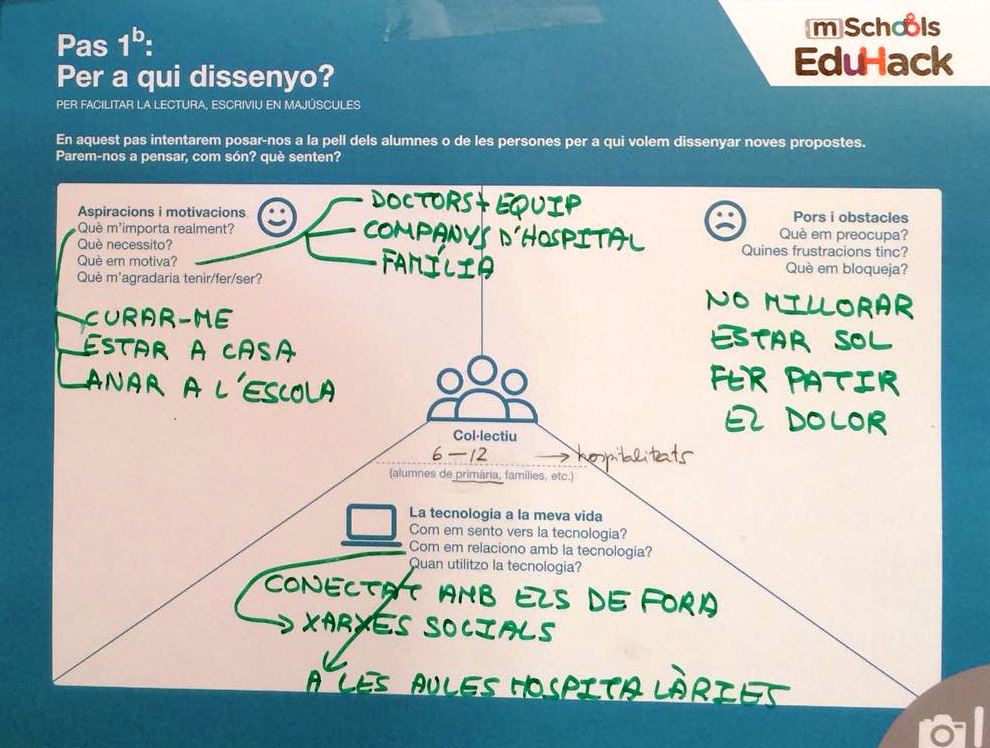 Pas 1b:
Per a qui dissenyo?
PER FACILITAR LA LECTURA, ESCRIVIU EN MAJÚSCULES
mSchools
EduHack
En aquest pas intentarem posar-nos a la pell dels alumnes o de les persones per a qui volem dissenyar noves propostes.
Parem-nos a pensar, com són? què senten?
Aspiracions i motivacions
Què m'importa realment?
Què necessito?
Què em motiva?
Què m'agradaria tenir/fer/ser?
DOCTORS + EQUIP
COMPANYS D'HOSPITAL
FAMÍLIA
CURAR-ME
ESTAR A CASA
ANAR A L'ESCOLA
Pors i obstacles
Què em preocupa?
Quines frustracions tinc?
Què em bloqueja?
NO MILLORAR
ESTAR SOL
FER PATIR
EL DOLOR
Col·lectiu
6-12 → hospitalitats
(alumnes de primària, famílies, etc.)
La tecnologia a la meva vida
Com em sento vers la tecnologia?
Com em relaciono amb la tecnologia?
Quan utilitzo la tecnologia?
CONECTAT AMB ELS DE FORA
XARXES SOCIALS
A LES AULES HOSPITALÀRIES